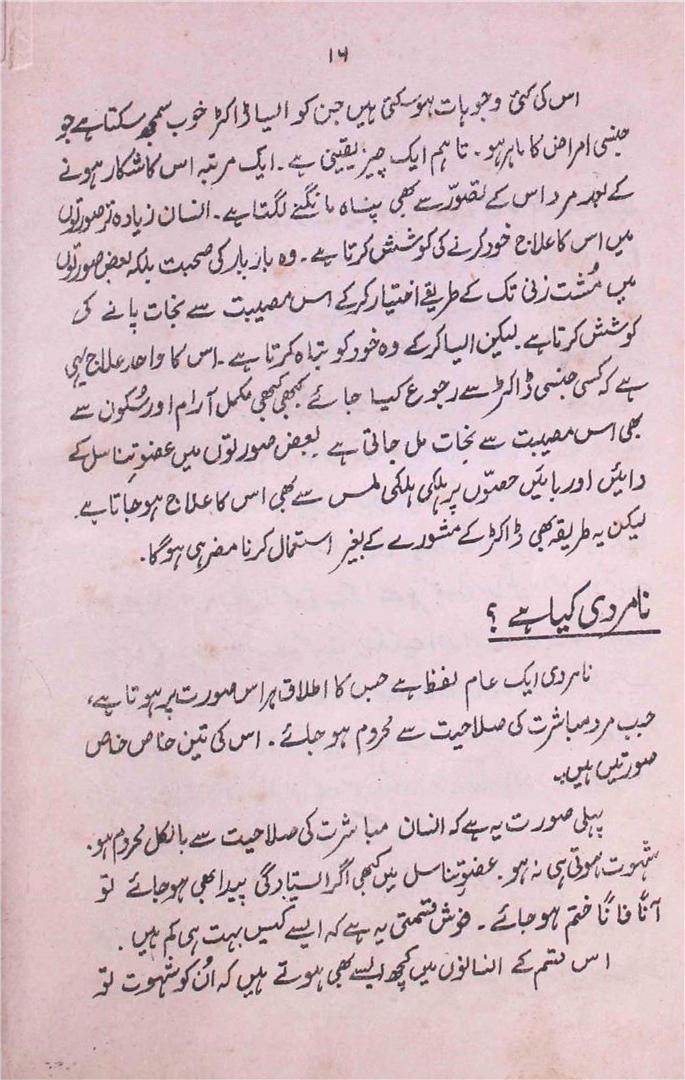 ۱۶
اس کی کئی وجوہات ہو سکتی ہیں جن کو ایسا ڈاکٹر خوب سمجھ سکتا ہے جو
جنسی امراض کا ماہر ہو۔ تاہم ایک چیز یقینی ہے۔ ایک مرتبہ اس کا شکار ہونے
کے بعد مرد اس کے تصوّر سے بھی پناہ مانگنے لگتا ہے۔ انسان زیادہ تر صورتوں
میں اس کا علاج خود کرنے کی کوشش کرتا ہے۔ وہ بار بار کی صحبت بلکہ بعض صورتوں
میں مُشت زنی تک کے طریقے اختیار کرکے اس مصیبت سے نجات پانے کی
کوشش کرتا ہے۔ لیکن ایسا کرکے وہ خود کو تباہ کرتا ہے۔ اس کا واحد علاج یہی
ہے کہ کسی جنسی ڈاکٹر سے رجوع کیا جائے کبھی کبھی مکمل آرام اور سُکون سے
بھی اس مصیبت سے نجات مل جاتی ہے بعض صورتوں میں عضوِ تناسل کے
دائیں اور بائیں حصّوں پر ہلکی ہلکی لمس سے بھی اس کا علاج ہو جاتا ہے۔
لیکن یہ طریقہ بھی ڈاکٹر کے مشورے کے بغیر استعمال کرنا مضر ہی ہوگا۔
نامردی کیا ہے ؟
نامردی ایک عام لفظ ہے جس کا اطلاق ہر اس صورت پر ہوتا ہے،
جب مرد مباشرت کی صلاحیت سے محروم ہو جائے۔ اس کی تین خاص خاص
صورتیں ہیں۔
پہلی صورت یہ ہے کہ انسان مباشرت کی صلاحیت سے بالکل محروم ہو۔
شہوت ہوتی ہی نہ ہو۔ عضوِ تناسل میں کبھی اگر ایستادگی پیدا بھی ہو جائے تو
آناً فاناً ختم ہو جائے۔ خوش قسمتی یہ ہے کہ ایسے کیس بہت ہی کم ہیں۔
اس قسم کے انسانوں میں کچھ ایسے بھی ہوتے ہیں کہ اُن کو شہوت تو